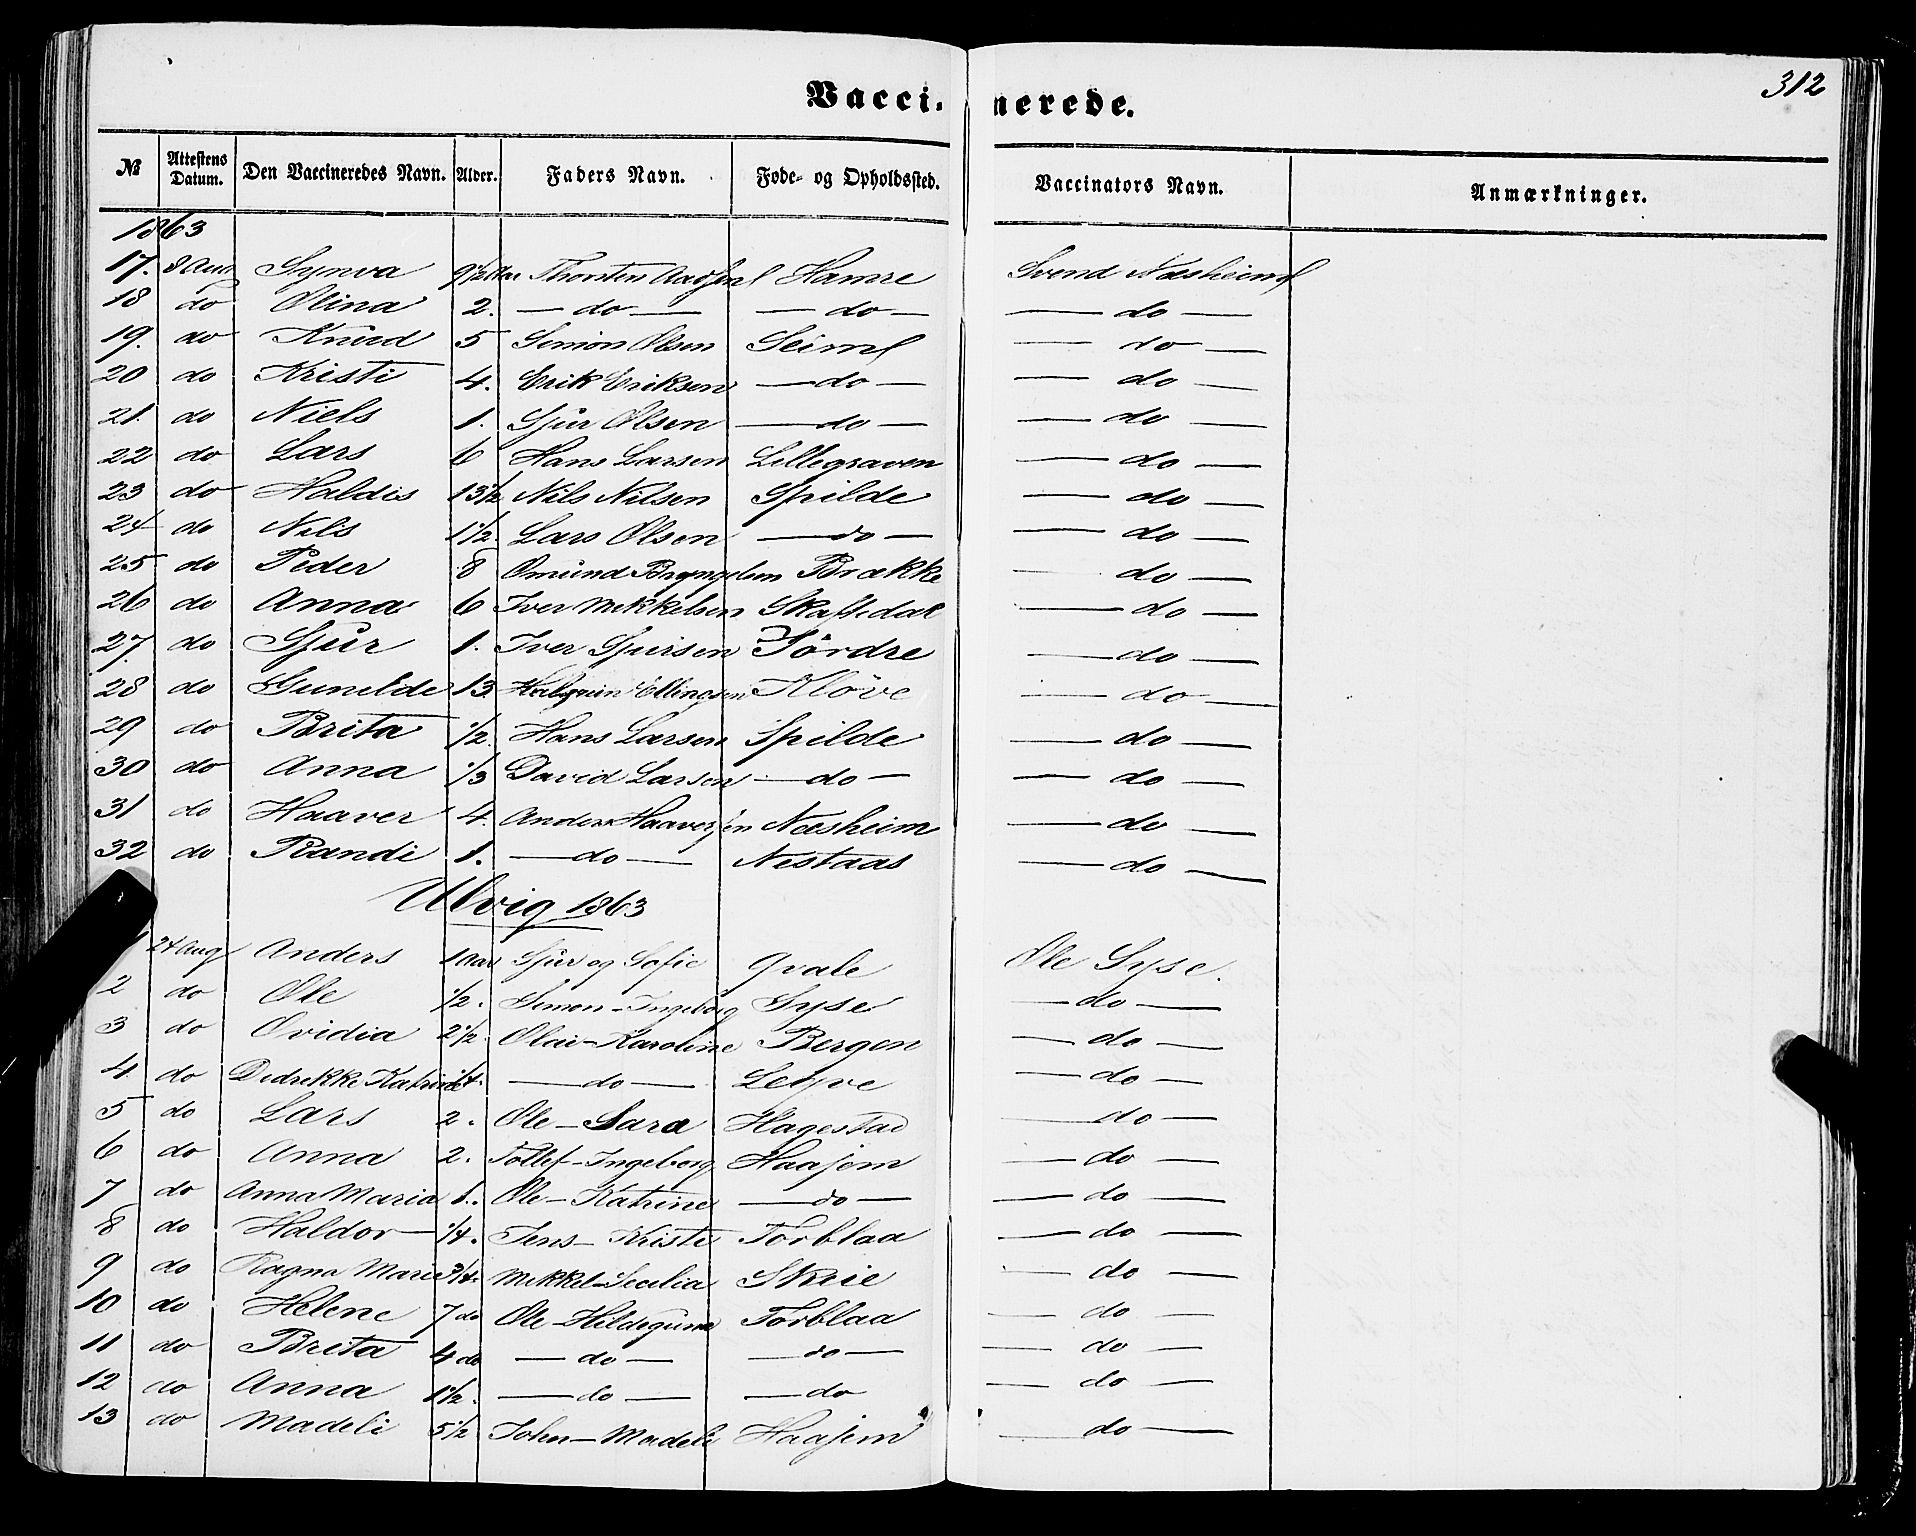 312
Vaccinerede.
№ Attestens Datum. Den Vaccineredes Navn. Alder. Faders Navn. Føde- og Opholdssted. Vaccinators Navn. Anmærkninger.
1863
17. 8 Aug Synva 9½ Aar Thorsten Hamre Svend Næsheim
18 do Olina 2. — do — — do — — do —
19. do Knud 5 Simon Olsen Seim — do —
20 do Kristi 4. Erik Eriksen — do — — do —
21. do Niels 1. Sjur Olsen — do — — do —
22 do Lars 6 Hans Larsen Lillegraven — do —
23 do Haldis 13½ Nils Nilsen Spilde — do —
24 do Nils 1½ Lars Olsen — do — — do —
25 do Peder 8 Omund Brække — do —
26 do Anna 6 Iver Mekkelsen Skaftedal — do —
27. do Sjur 1. Iver Sjursen Tördre — do —
28 do Gunilde 13. Ellingsen Klöve — do —
29 do Brita ½. Hans Larsen Spilde — do —
30 do Anna ⅓ David Larsen — do — — do —
31 do Haaver 4. Anders Haaversen Næsheim — do —
32 do Randi 1. — do — Nestaas — do —
Ulvig 1863
24 Aug Anders 1 Aar Sjur og Sofie Qvale Ole Syse.
2 do Ole ½. Simon - Ingeborg Syse — do —
3 do Ovidia 2½ Olai - Karoline Bergen — do —
4. do Didrekke Katrine ¼. — do — Leqve — do —
5 do Lars 2. Ole - Sara Hagestad — do —
6 do Anna 2. Tollef - Ingeborg Haajem — do —
7 do Anna Maria 1. Ole - Katrine — do — — do —
8 do Haldor ¼. Jens - Kristi Torblaa — do —
9 do Ragna Marie ¾. Mekkel - Secilia Skeie — do —
10 do Helene 7 do Ole - Hildegunn Torblaa — do —
11 do Brita 4 do — do — — do — — do —
12 do Anna 1½. — do — — do — do —
13 do Madeli 5½ John - Madeli Haajem — do —